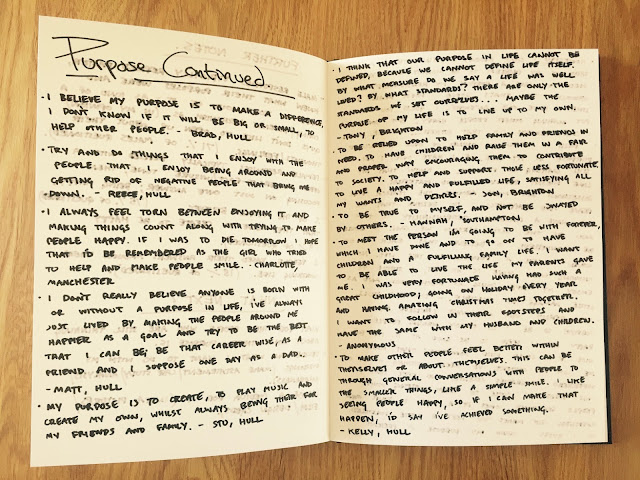 Purpose Continued
· I BELIEVE MY PURPOSE IS TO MAKE A DIFFERENCE,
I DON'T KNOW IF IT WILL BE BIG OR SMALL, TO
HELP OTHER PEOPLE. - BRAD, HULL
· TRY AND DO THINGS THAT I ENJOY WITH THE
PEOPLE THAT I ENJOY BEING AROUND AND
GETTING RID OF NEGATIVE PEOPLE THAT BRING ME
DOWN. - REECE, HULL
· I ALWAYS FEEL TORN BETWEEN ENJOYING IT AND
MAKING THINGS COUNT ALONG WITH TRYING TO MAKE
PEOPLE HAPPY. IF I WAS TO DIE TOMORROW I HOPE
THAT I'D BE REMEMBERED AS THE GIRL WHO TRIED
TO HELP AND MAKE PEOPLE SMILE. - CHARLOTTE,
MANCHESTER
· I DON'T REALLY BELIEVE ANYONE IS BORN WITH
OR WITHOUT A PURPOSE IN LIFE, I'VE ALWAYS
JUST LIVED BY MAKING THE PEOPLE AROUND ME
HAPPIER AS A GOAL AND TRY TO BE THE BEST
THAT I CAN BE; BE THAT CAREER WISE, AS A
FRIEND, AND I SUPPOSE ONE DAY AS A DAD.
- MATT, HULL
· MY PURPOSE IS TO CREATE, TO PLAY MUSIC AND
CREATE MY OWN, WHILST ALWAYS BEING THEIR FOR
MY FRIENDS AND FAMILY. - STU, HULL
· I THINK THAT OUR PURPOSE IN LIFE CANNOT BE
DEFINED, BECAUSE WE CANNOT DEFINE LIFE ITSELF.
BY WHAT MEASURE DO WE SAY A LIFE WAS WELL
LIVED? BY WHAT STANDARDS? THERE ARE ONLY THE
STANDARDS WE SET OURSELVES... MAYBE THE
PURPOSE OF MY LIFE IS TO LIVE UP TO MY OWN.
- TONY, BRIGHTON
· TO BE RELIED UPON TO HELP FAMILY AND FRIENDS IN
NEED. TO HAVE CHILDREN AND RAISE THEM IN A FAIR
AND PROPER WAY ENCOURAGING THEM TO CONTRIBUTE
TO SOCIETY. TO HELP AND SUPPORT THOSE LESS FORTUNATE.
TO LIVE A HAPPY AND FULFILLED LIFE, SATISFYING ALL
MY WANTS AND DESIRES. - JON, BRIGHTON
· TO BE TRUE TO MYSELF, AND NOT BE SWAYED
BY OTHERS. - HANNAH, SOUTHAMPTON
· TO MEET THE PERSON I'M GOING TO BE WITH FOREVER,
WHICH I HAVE DONE AND TO GO ON TO HAVE
CHILDREN AND A FULFILLING FAMILY LIFE. I WANT
TO BE ABLE TO LIVE THE LIFE MY PARENTS GAVE
ME. I WAS VERY FORTUNATE HAVING HAD SUCH A
GREAT CHILDHOOD; GOING ON HOLIDAY EVERY YEAR
AND HAVING AMAZING CHRISTMAS TIMES TOGETHER.
I WANT TO FOLLOW IN THEIR FOOTSTEPS AND
HAVE THE SAME WITH MY HUSBAND AND CHILDREN.
- ANONYMOUS
· TO MAKE OTHER PEOPLE FEEL BETTER WITHIN
THEMSELVES OR ABOUT THEMSELVES. THIS CAN BE
THROUGH GENERAL CONVERSATIONS WITH PEOPLE TO
THE SMALLER THINGS, LIKE A SIMPLE SMILE. I LIKE
SEEING PEOPLE HAPPY, SO IF I CAN MAKE THAT
HAPPEN, I'D SAY I'VE ACHIEVED SOMETHING.
- KELLY, HULL